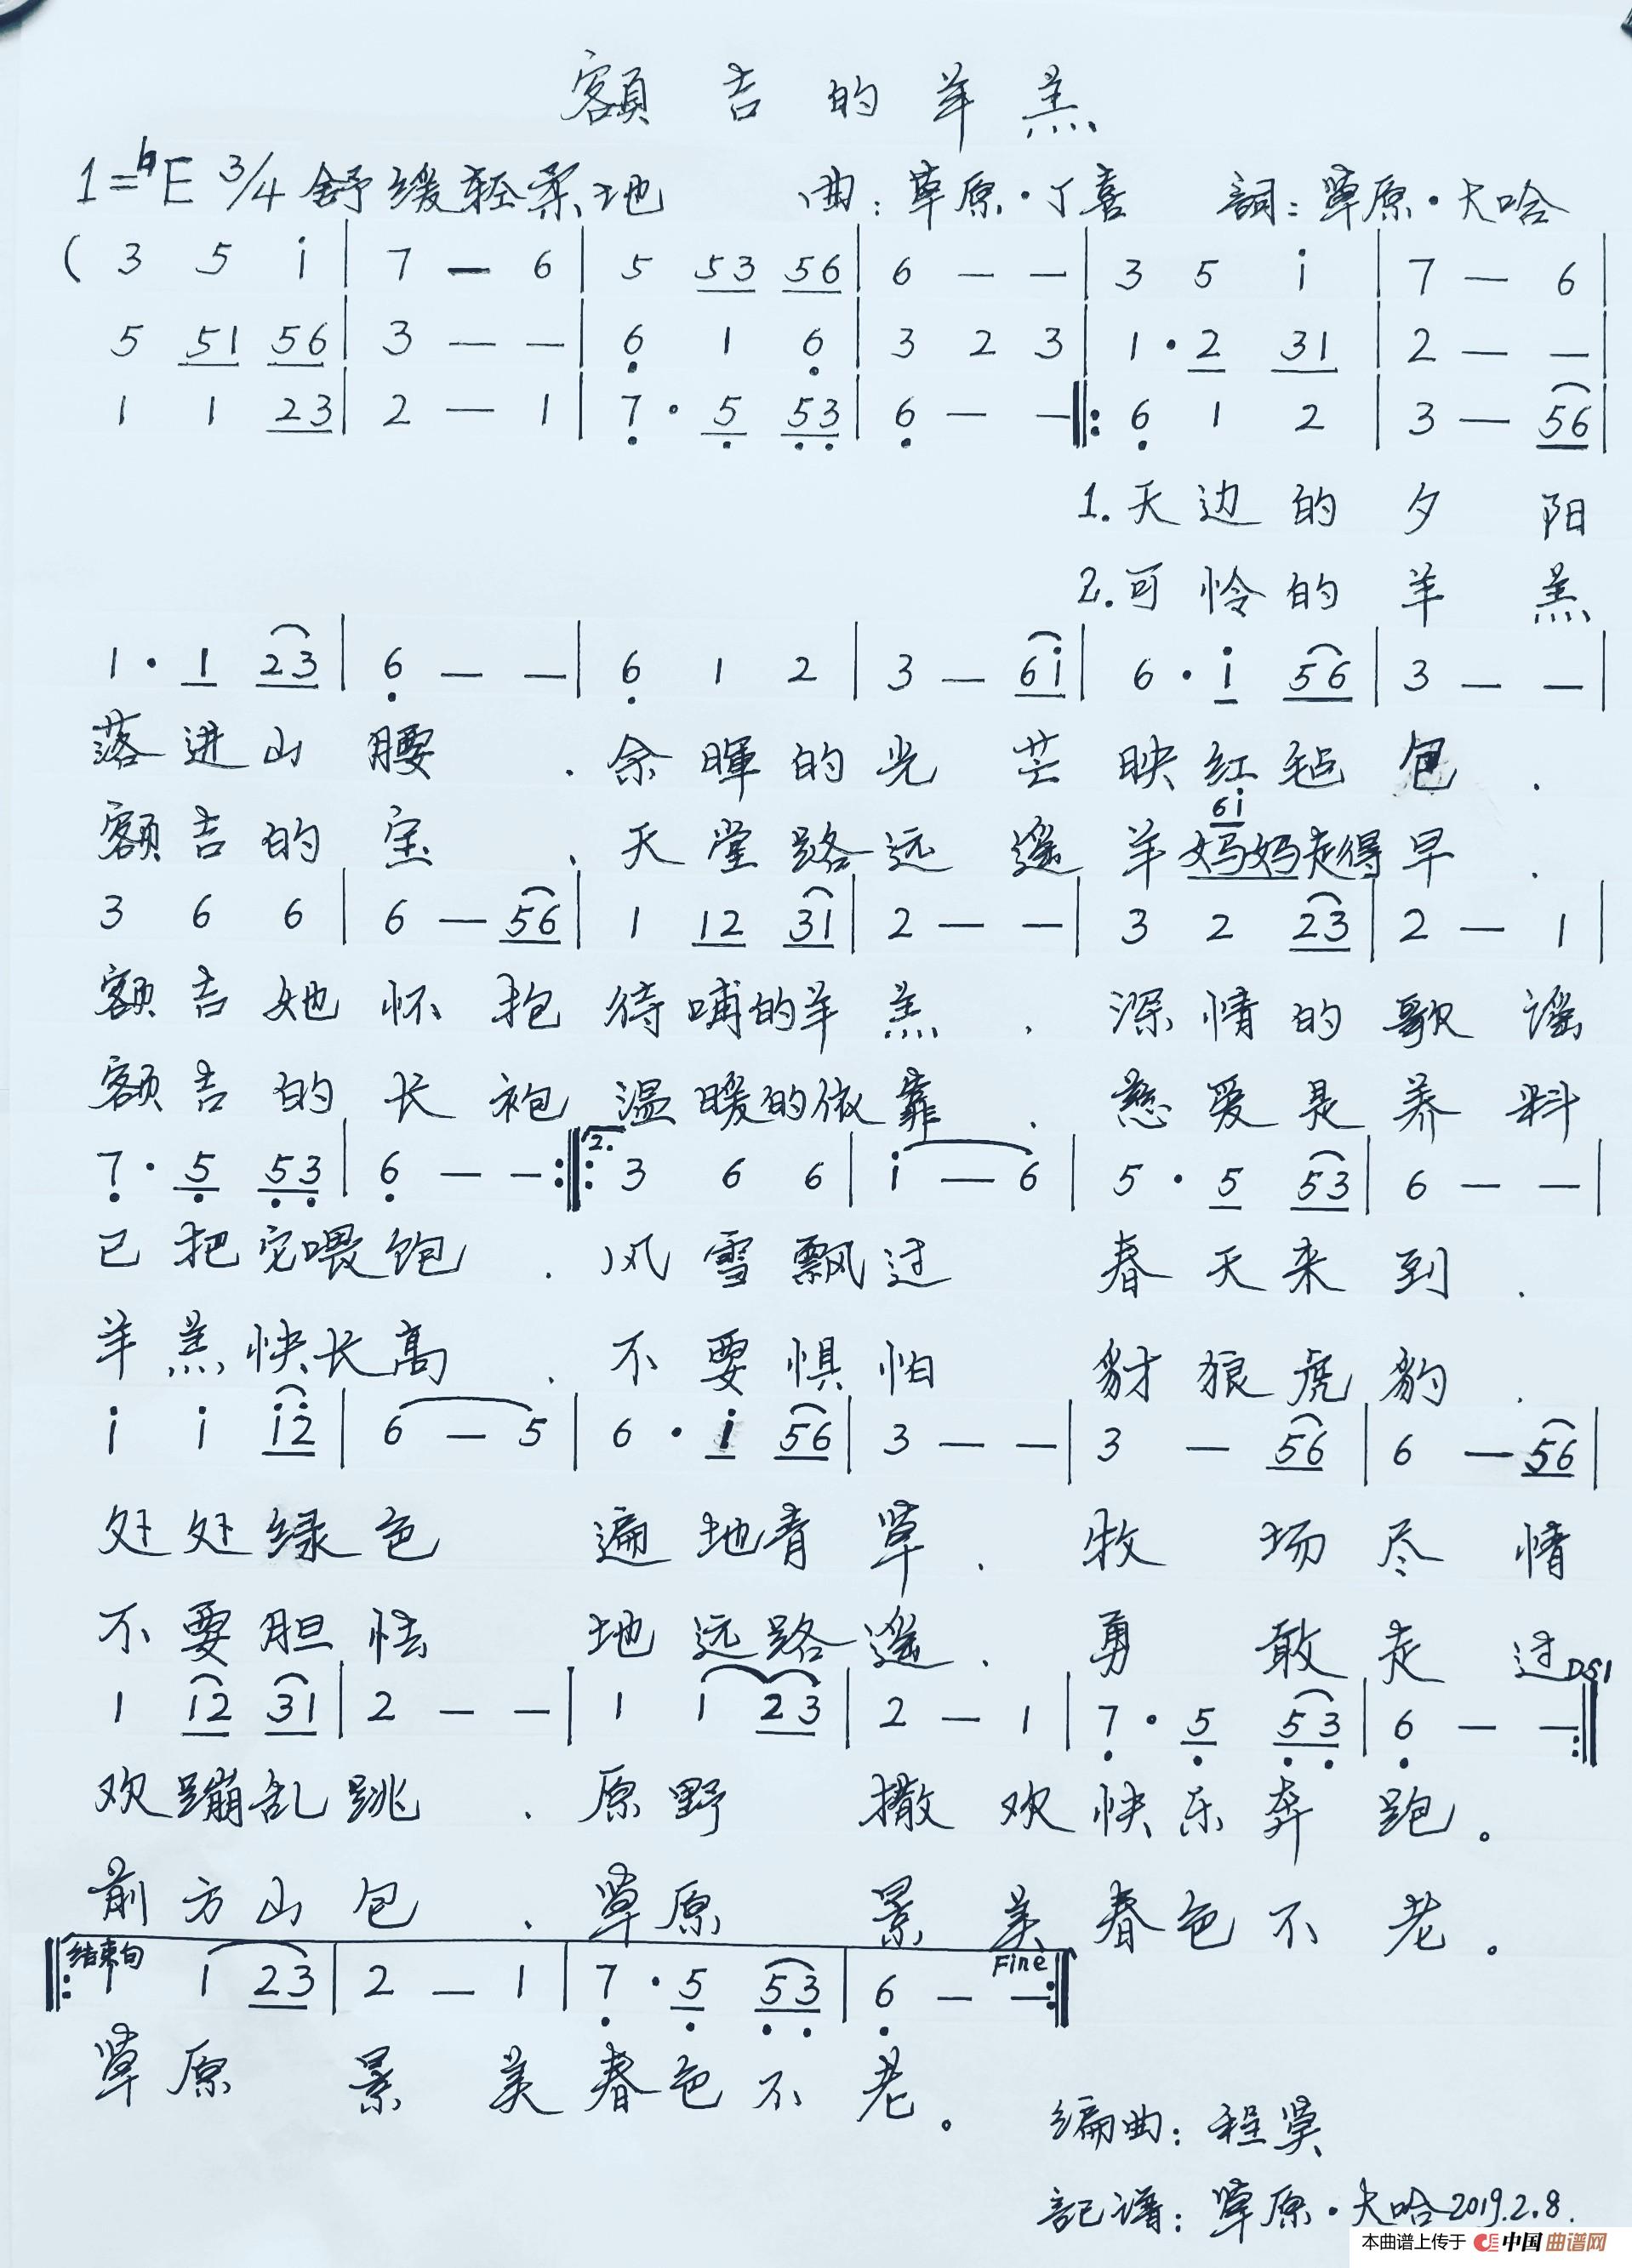 额吉的羊羔
1=♭E 3/4 舒缓轻柔地 曲:草原·丁喜 詞:草原·大哈
( 3 5 i | 7 — 6 | 5 53 56 | 6 — — | 3 5 i | 7 — 6 |
5 51 56 | 3 — — | 6 1 6 | 3 2 3 | 1· 2 31 | 2 — — |
1 1 23 | 2 — 1 | 7· 5 53 | 6 — — ‖: 6 1 2 | 3 — 56 |
1.天边的夕阳
2.可怜的羊羔
1· 1 23 | 6 — — | 6 1 2 | 3 — 6i | 6· i 56 | 3 — — |
落进山腰.余暉的光芒映红毡包.
6i
额吉的宝、天堂路远遥羊妈妈走得早.
3 6 6 | 6 — 56 | 1 12 31 | 2 — — | 3 2 23 | 2 — 1 |
额吉她怀抱待哺的羊羔.深情的歌谣
额吉的长袍温暖的依靠.慈爱是养料
7· 5 53 | 6 — — :‖: 2. 3 6 6 | i — 6 | 5· 5 53 | 6 — — |
已把它喂饱.风雪飘过春天来到.
羊羔快长高.不要惧怕豺狼虎豹.
i i i2 | 6 — 5 | 6· i 56 | 3 — — | 3 — 56 | 6 — 56 |
处处绿色遍地青草.牧场尽情
不要胆怯地远路遥.勇敢走过
1 12 31 | 2 — — | 1 1 23 | 2 — 1 | 7· 5 53 | 6 — — :‖ DS1
欢蹦乱跳.原野撒欢快乐奔跑。
前方山包.草原景美春色不老。
‖: 结束句 1 1 23 | 2 — 1 | 7· 5 53 | 6 — — :‖ Fine
草原景美春色不老。
编曲:程昊
記谱:草原·大哈2019.2.8.
本曲谱上传于 中国曲谱网